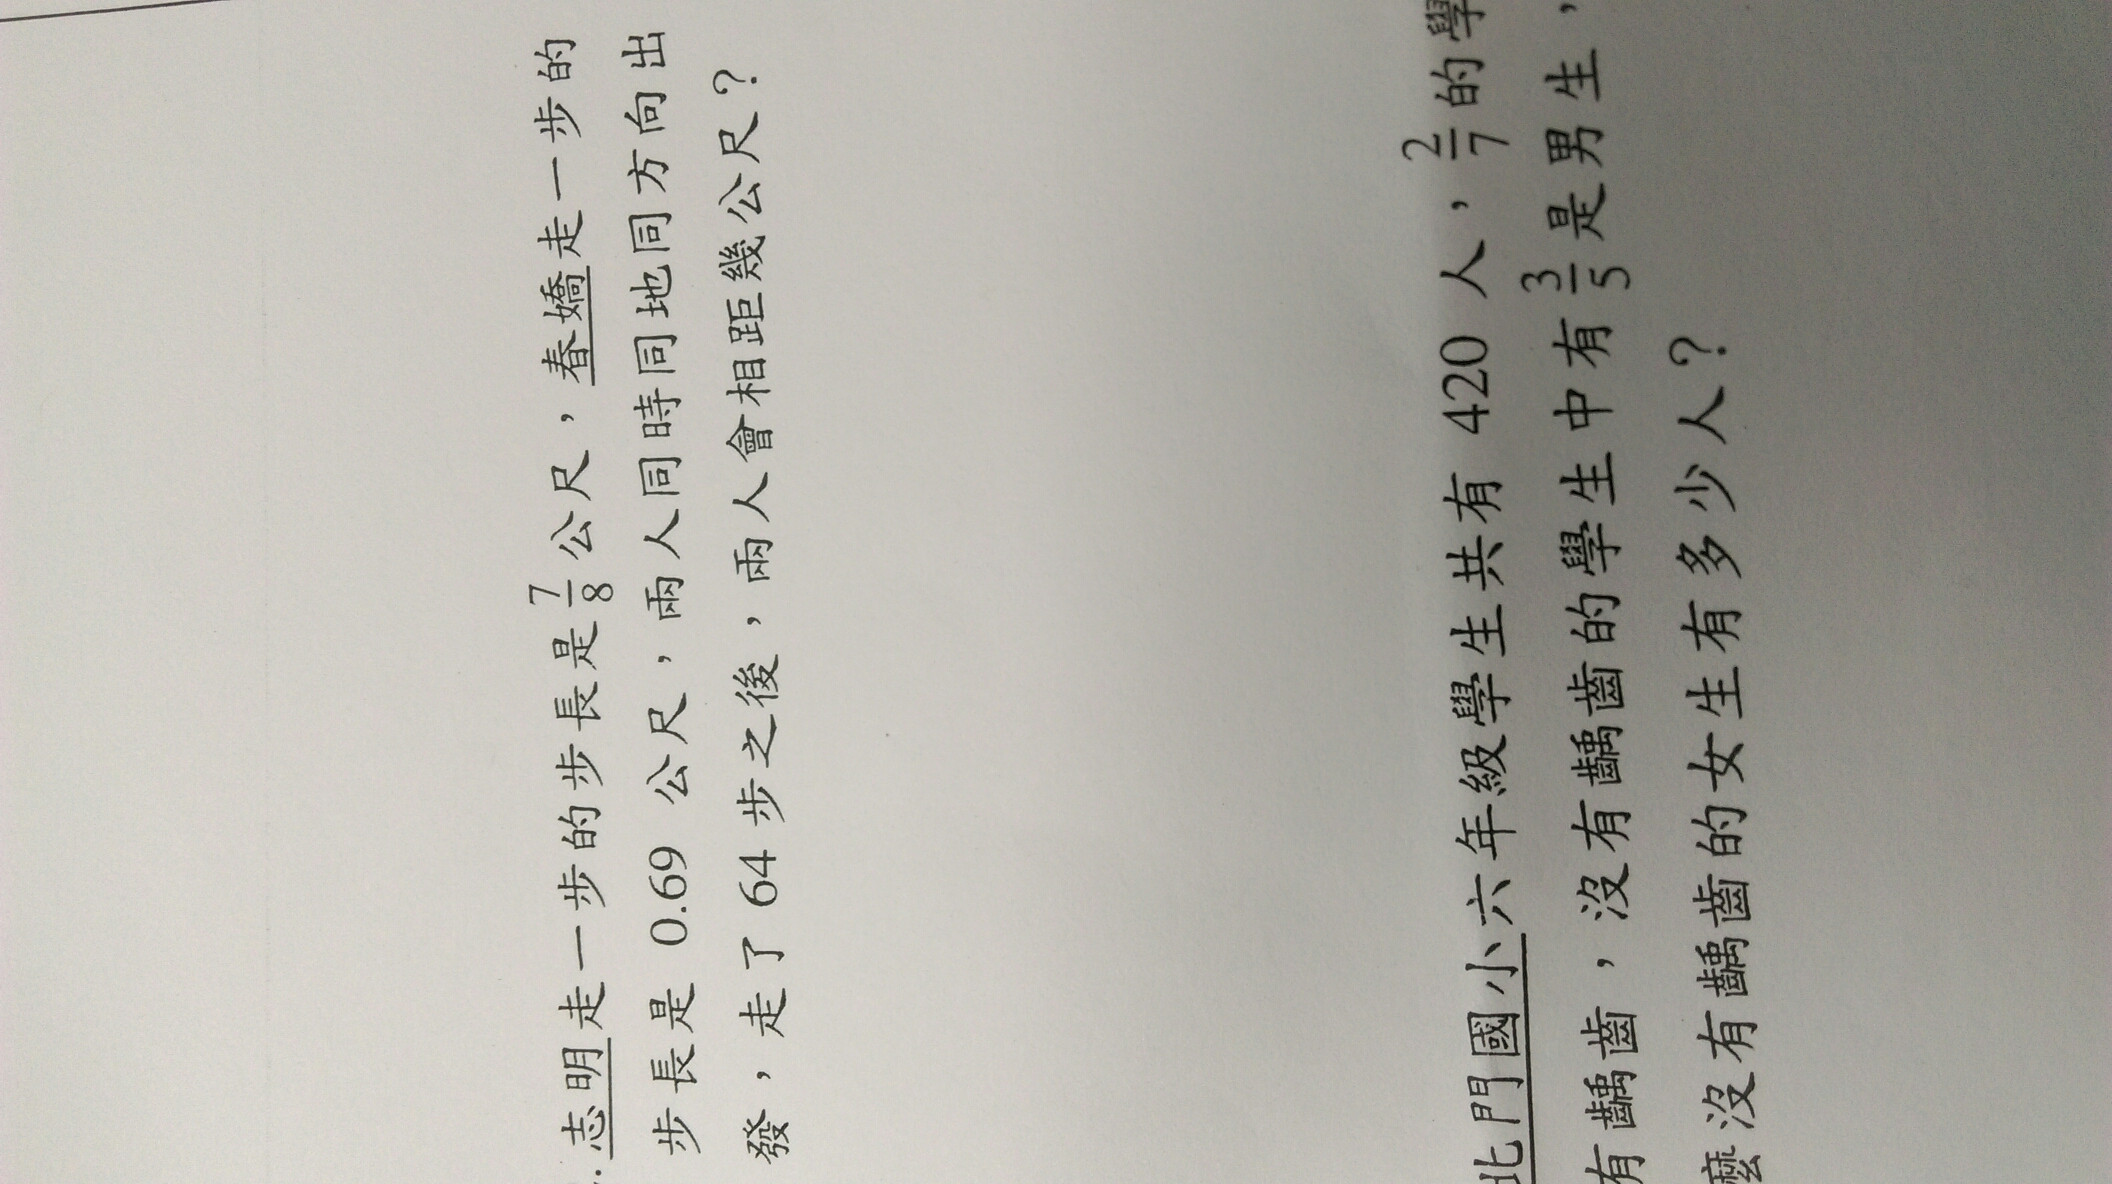 .志明走一步的步長是7/8公尺，春嬌走一步的
步長是 0.69 公尺，兩人同時同地同方向出
發，走了 64 步之後，兩人會相距幾公尺？
北門國小六年級學生共有 420 人，2/7的學
有齲齒，沒有齲齒的學生中有3/5是男生，
麼沒有齲齒的女生有多少人？